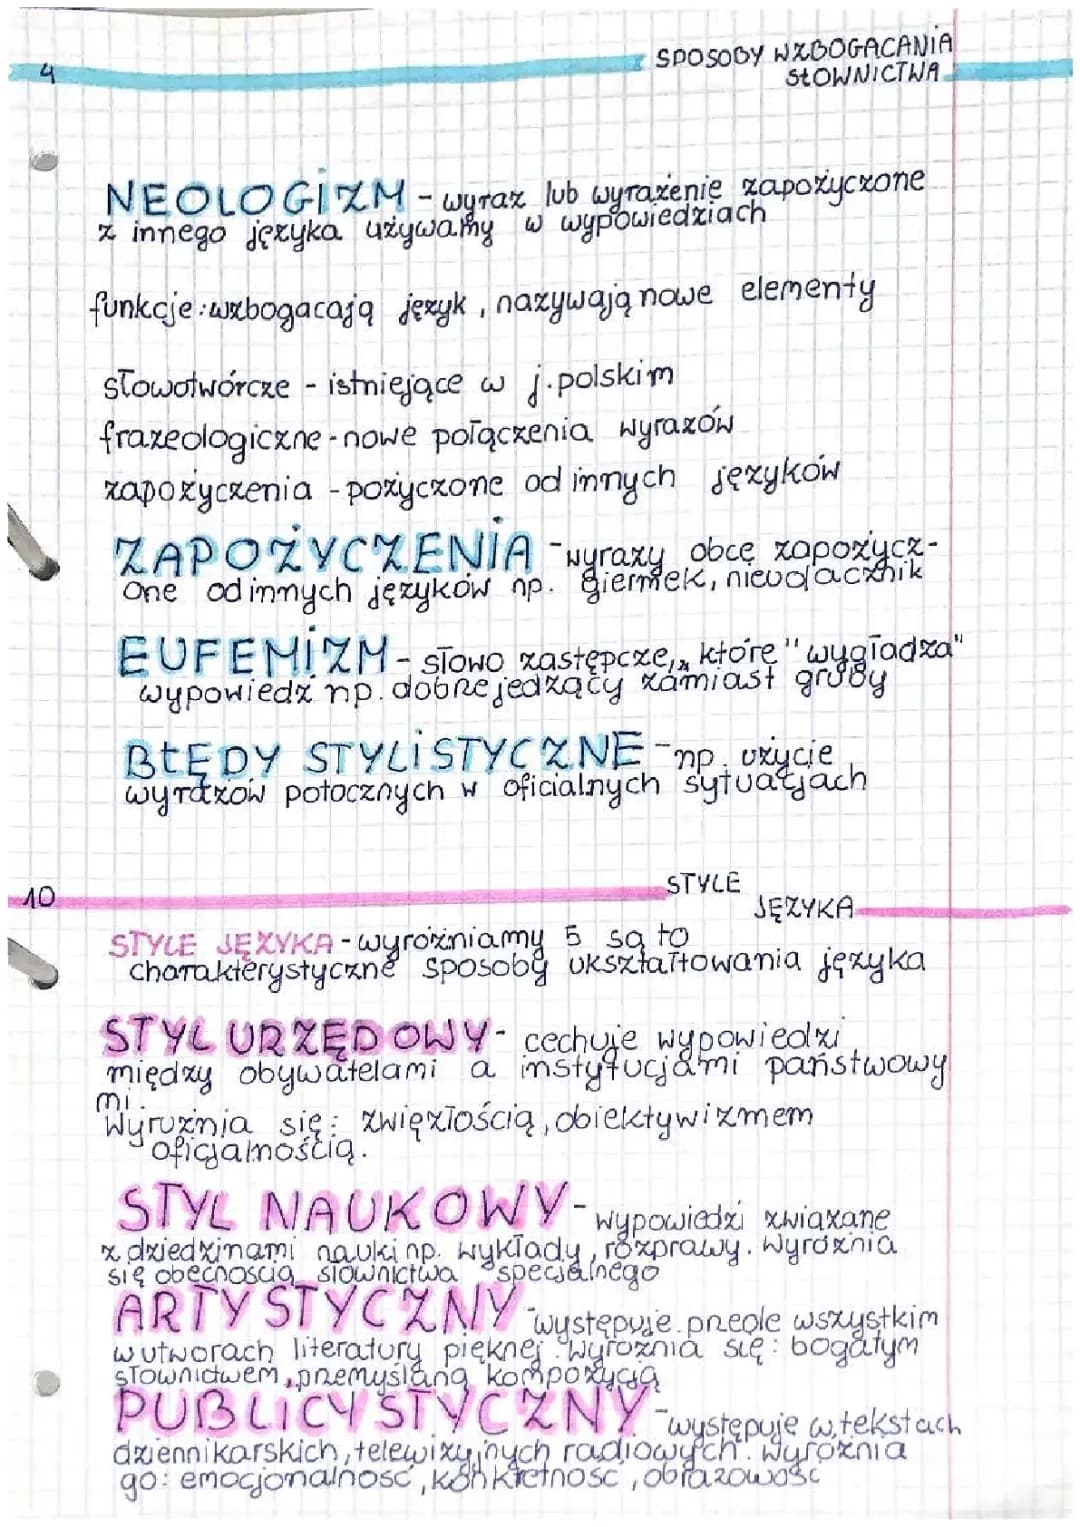 4
SPOSOBY WZBOGACANIA
SŁOWNICTWA
NEOLOGIZM - wyraz lub wyrażenie zapożyczone
z innego języka używamy w wypowiedziach
funkcje: wzbogacają język, nazywają nowe elementy
słowotwórcze - istniejące w j. polskim
frazeologiczne - nowe połączenia wyrazów
zapożyczenia - pożyczone od innych języków
ZAPOŻYCZENIA - wyrazy obce zapożycz-
one od innych języków np. giermek, nieudacznik
EUFEMIZM - słowo zastępcze, które "wygładza"
wypowiedź np. dobrze jedzący zamiast gruby
BŁĘDY STYLISTYCZNE - np. użycie
wyrazów potocznych w oficialnych sytuacjach
10
STYLE
JĘZYKA
STYLE JĘZYKA - wyróżniamy 5 są to
charakterystyczne sposoby ukształtowania języka
STYL URZĘDOWY - cechuje wypowiedzi
między obywatelami a instytucjami państwowy
mi.
Wyróżnia się: zwięzłością, obiektywizmem
oficjalnością.
STYL NAUKOWY - wypowiedzi związane
z dziedzinami nauki np. wykłady, rozprawy. Wyróżnia
się obecnością słownictwa specjalnego
ARTYSTYCZNY - występuje wszystkim
w utworach literatury pięknej. Wyróżnia się: bogatym
słownictwem, przemyślaną kompozycją
PUBLICYSTYCZNY - występuje w tekstach
dziennikarskich, telewizyjnych radiowych. Wyróżnia
go: emocjonalność, konkretność, obrazowość